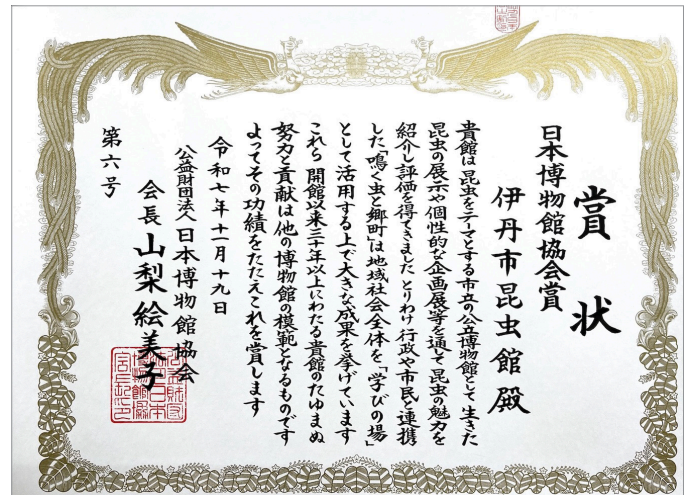 賞状
日本博物館協会賞
伊丹市昆虫館殿
貴館は昆虫をテーマとする市立の公立博物館として生きた
昆虫の展示や個性的な企画展等を通して昆虫の魅力を
紹介し評価を得てきましたとりわけ行政や市民と連携
した「鳴く虫と郷町」は地域社会全体を「学びの場」
として活用する上で大きな成果を挙げています
これら開館以来三十年以上にわたる貴館のたゆまぬ
努力と貢献は他の博物館の模範となるものです
よってその功績をたたえこれを賞します
令和七年十一月十九日
公益財団法人日本博物館協会
会長 山梨絵美子
第六号